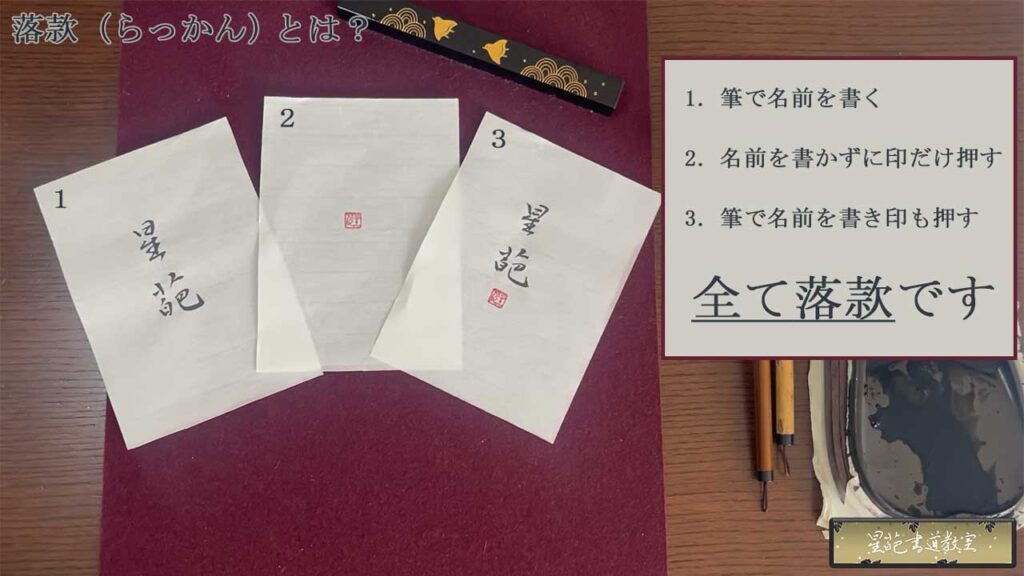 落款（らっかん）とは？
1
星葩
2
3
星葩
1．筆で名前を書く
2．名前を書かずに印だけ押す
3．筆で名前を書き印も押す
全て落款です
星葩書道教室